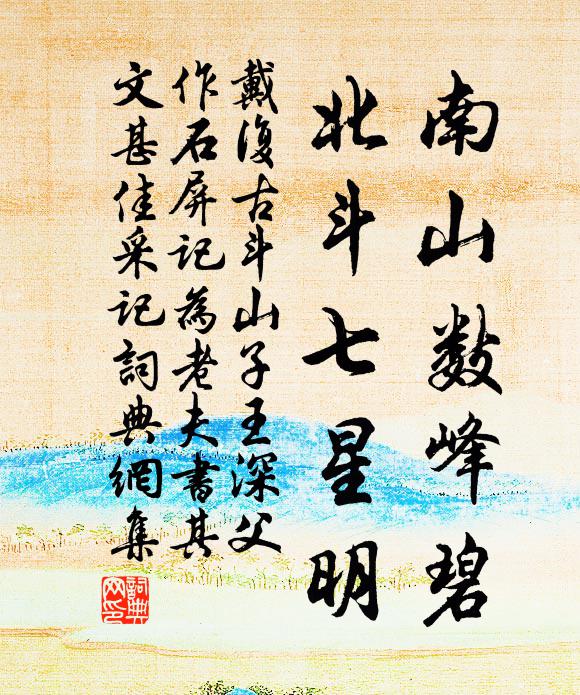 南山數峰碧
北斗七星明
戴復古斗山子王深父
作石屏記為老夫書其
文甚佳采記詞典網集
詞典
网印